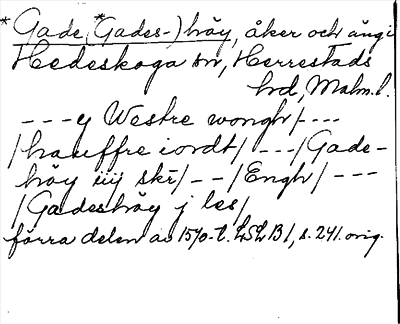 * Gade (*Gades-) höy, åker och äng i
Hedeskoga sn, Herrestads
hd, Malm. l.
---y Westre wongh/---
/hauffre iordt/---/Gade-
höy iiij skr/--/Engh/---
/Gadeshöy j les/
förra delen av 1570-t. LSLB1, s. 241. orig.